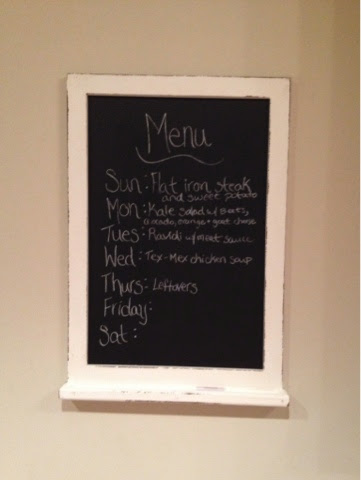 Menu
Sun: Flat iron steak
and sweet potato
Mon: Kale salad w/ Beets,
avocado, orange + goat cheese
Tues: Ravioli w/ meat sauce
Wed: Tex-Mex chicken soup
Thurs: Leftovers
Friday:
Sat: